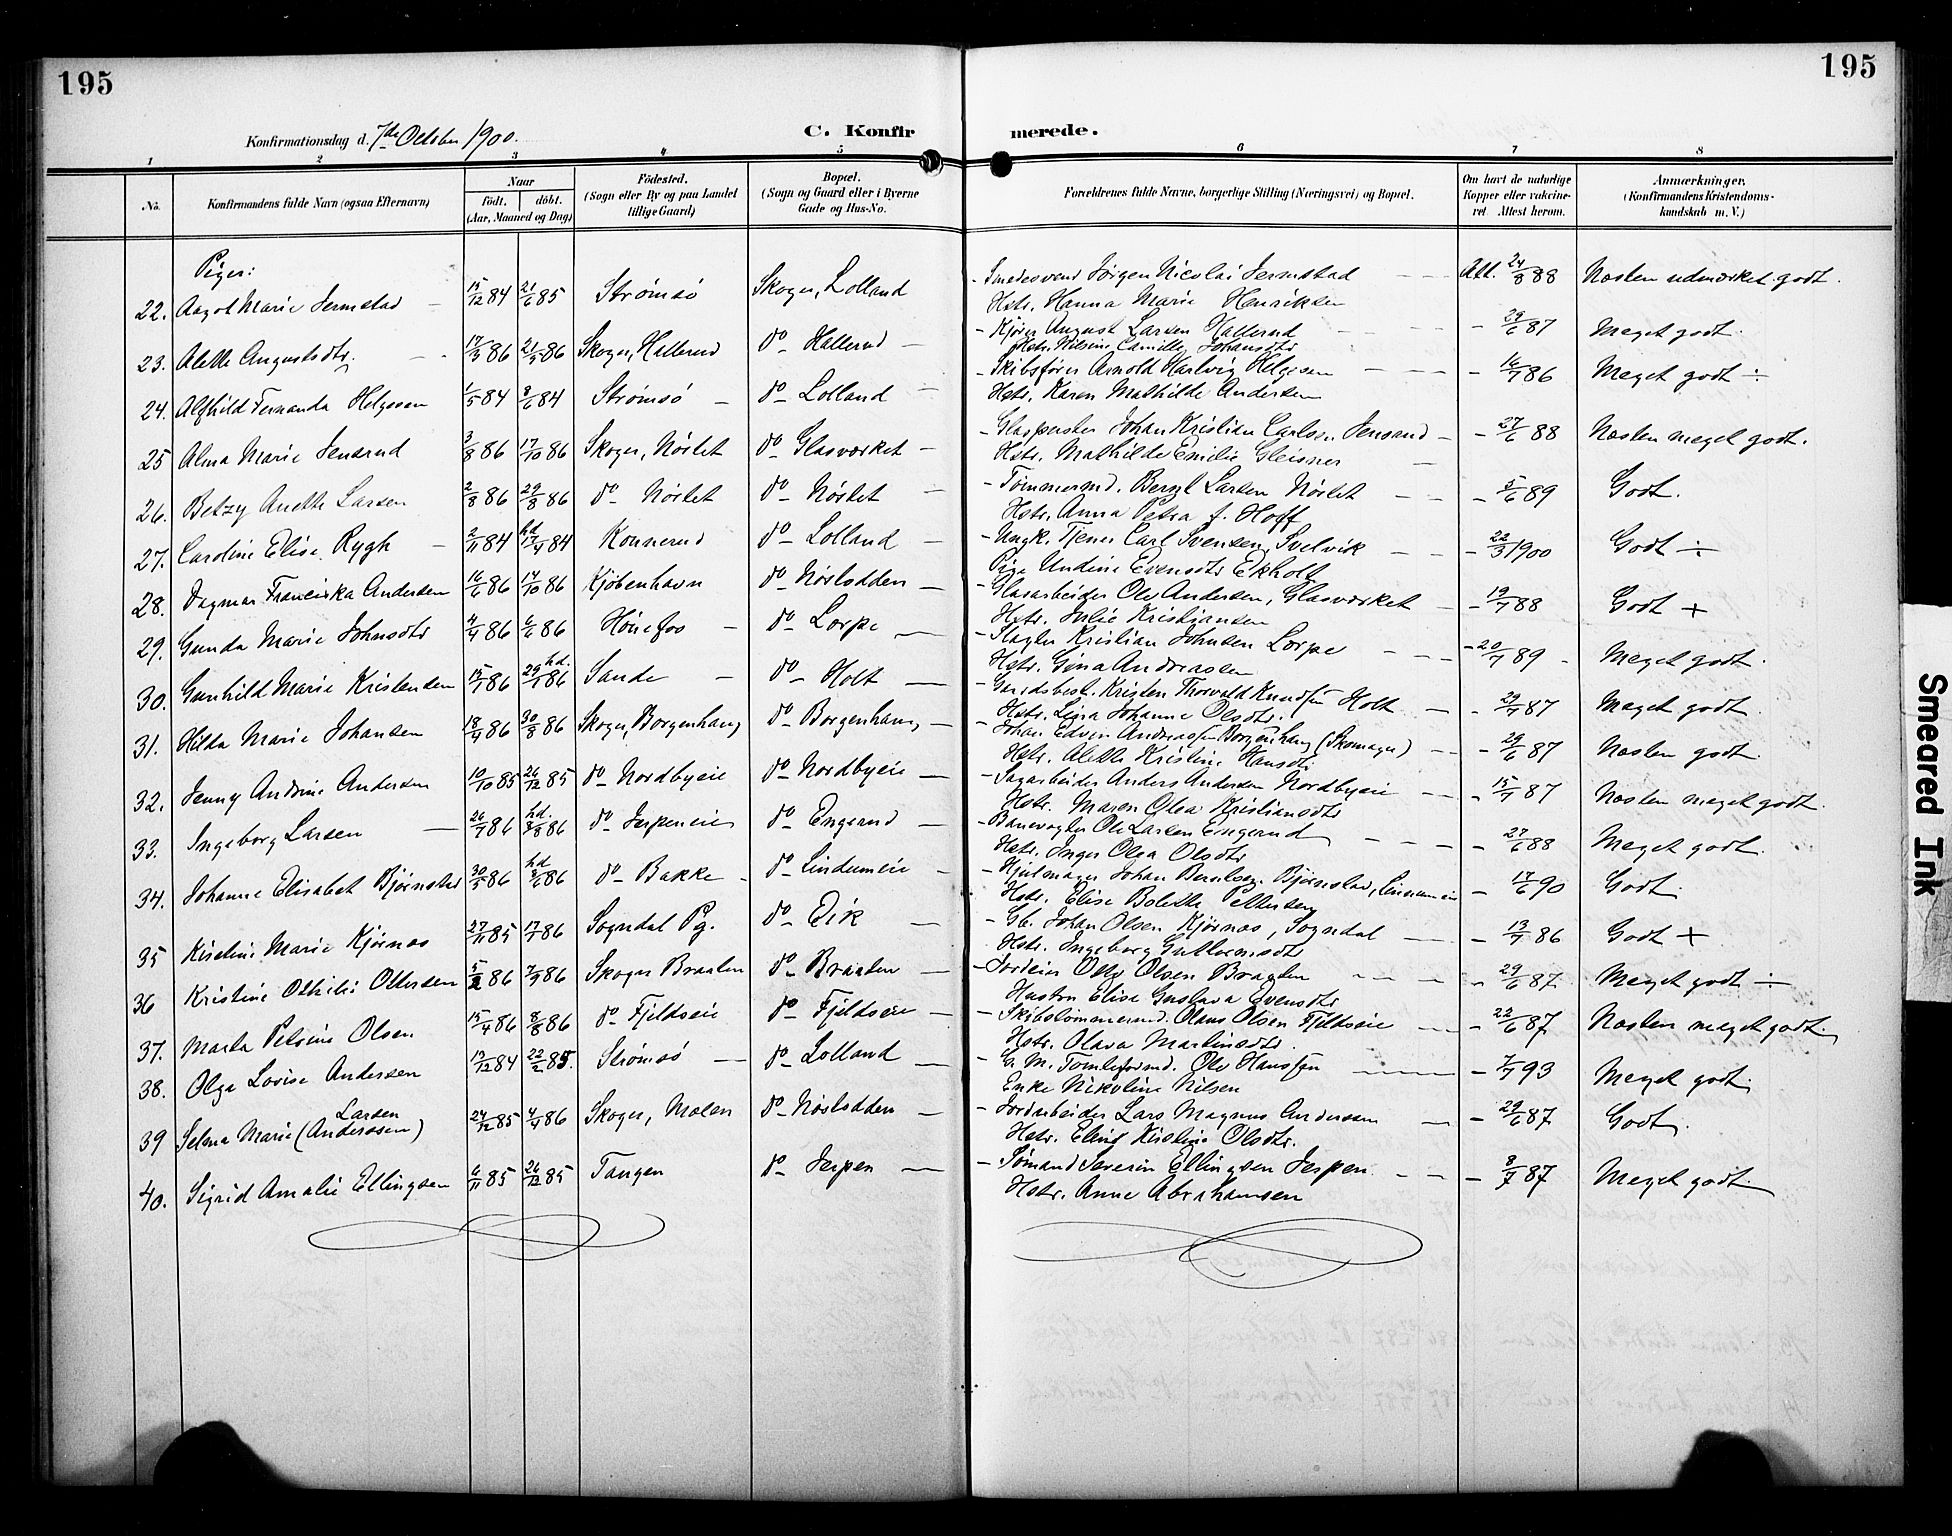 195
195
Konfirmationsdag d. 7de October 1900.
C. Konfirmerede.
1 2 3 4 5 6 7 8
No. Konfirmandens fulde Navn (ogsaa Efternavn) Naar født. døbt. (Aar, Maaned og Dag) Födested. (Sogn eller By og paa Landet tillige Gaard) Bopæl. (Sogn og Gaard eller i Byerne Gade og Hus-No. Forældrenes fulde Navne, borgerlige Stilling (Næringsvei) og Bopæl. Om havt de naturlige Kopper eller vakcineret. Attest herom. Anmærkninger, (Konfirmandens Kristendomskundskab m. V.)
Piger:
22. Aagot Marie Jermstad 15/12 84 21/6 85 Strömsö Skoger, Lolland - Smedesvend Jörgen Nicolai Jermstad Att. 24/8 88 Næsten udmærket godt.
Hstr. Hanna Marie Henriksen
23. Alette Augustsdtr. 17/3 86 21/5 86 Skoger, Hallerud do Hallerud - Kjörer August Larsen Hallerud - 29/6 87 Meget godt.
Hstr. Nilsine Camilla Johansdtr
24. Alfhild Fernanda Helgesen 1/5 84 8/6 84 Strömsö do Lolland - Skibsförer Arnold Hartvig Helgesen - 16/7 86 Meget godt ÷
Hstr. Karen Mathilde Andersen
25 Alma Marie Jensrud 3/8 86 17/10 86 Skoger, Nöslet do Glasværket - Glaspuster Johan Kristian Carlsen Jensrud - 27/6 88 Næsten meget godt.
Hstr. Mathilde Emilie Gleisner
26. Betzy Anette Larsen 2/8 86 29/8 86 do Nöslet do Nöslet - Tömmermd. Bernt Larsen Nöslet - 5/6 89 Godt.
Hstr. Anna Petra f. Hoff
27. Caroline Elise Rygh 2/11 84 hd 17/4 84 Konnerud do Lolland - Ungk. Tjener Carl Svensen, Svelvik - 22/3 1900 Godt ÷
Pige Undine Evensdtr Ekholt
28. Dagmar Franciska Andersen 16/6 86 14/10 86 Kjöbenhavn do Nöslodden - Glasarbeider Ole Andersen, Glasværket - 19/7 88 Godt +
Hstr. Julie Kristiansen
29. Gunda Marie Johnsdtr 4/4 86 6/6 86 Hönefos do Lorpe - Slagter Kristian Johnsen Lorpe - 20/7 89 Meget godt.
Hstr. Gina Andreasen
30. Gunhild Marie Kristensen 15/7 86 hd. 29/7 86 Sande do Holt - Gaardsbest. Kristen Thorvald Knudsen Holt - 29/7 87 Meget godt.
Hstr. Lina Johanne Olsdtr.
31. Hilda Marie Johansen 18/4 86 30/8 86 Skoger, Borgenhaug do Borgenhaug - Johan Edvin Andreassen Borgenhaug (Skomager) - 29/6 87 Næsten godt.
Hstr. Alette Kristine Hansdtr
32. Jenny Andrine Andersen 10/10 85 26/12 85 do Nordbyeie do Nordbyeie - Sagarbeider Anders Andersen Nordbyeie - 15/7 87 Næsten meget godt.
Hstr. Maren Olea Kristiansdtr
33. Ingeborg Larsen 26/7 86 hd. 8/8 86 do Jerpeneie do Engerud - Banevogter Ole Larsen Engerud - 27/6 88 Meget godt.
Hstr. Inger Olea Olsdtr
34. Johanne Elisabet Björnstad 30/5 86 hd 3/6 86 do Bakke do Lindumeie - Hjulmager Johan Berntsen Björnstad, Lindumeie - 17/6 90 Godt.
Hstr. Elise Bolette Pettersen
35 Kirstine Marie Kjörnæs 27/11 85 17/1 86 Sogndal Pg. do Eik - Gb. Johan Olsen Kjörnæs, Sogndal - 13/7 86 Godt +
Hstr. Ingeborg Guttormsdtr
36 Kristine Othilie Ottersen 5/2 86 7/9 86 Skoger Braaten do Braaten - Jordeier Otto Olsen Braaten - 29/6 87 Meget godt ÷
Hustru Elise Gustava Evensdtr
37. Marta Petrine Olsen 15/4 86 8/8 86 do Fjeldseie do Fjeldseie - Skibstömmermd. Olaus Olsen Fjeldseie - 22/6 87 Næsten meget godt.
Hstr. Olava Martinsdtr.
38. Olga Lovise Andersen 19/12 84 22/2 85. Strömsö do Lolland - G. M. Tomteformd. Ole Hanssen - 7/7 93 Meget godt.
Enke Nikoline Nilsen
39 Selma Marie (Anderssen) Larsen 24/12 85 4/4 86 Skoger, Molen do Nöslodden - Jordarbeider Lars Magnus Andersen - 29/6 87 Godt.
Hstr. Eline Kirstine Olsdtr.
40. Sigrid Amalie Ellingsen 6/11 85 26/12 85 Tangen do Jerpen - Sömand Severin Ellingsen Jerpen - 8/7 87 Meget godt.
Hstr. Anne Abrahamsen
Smeared Ink